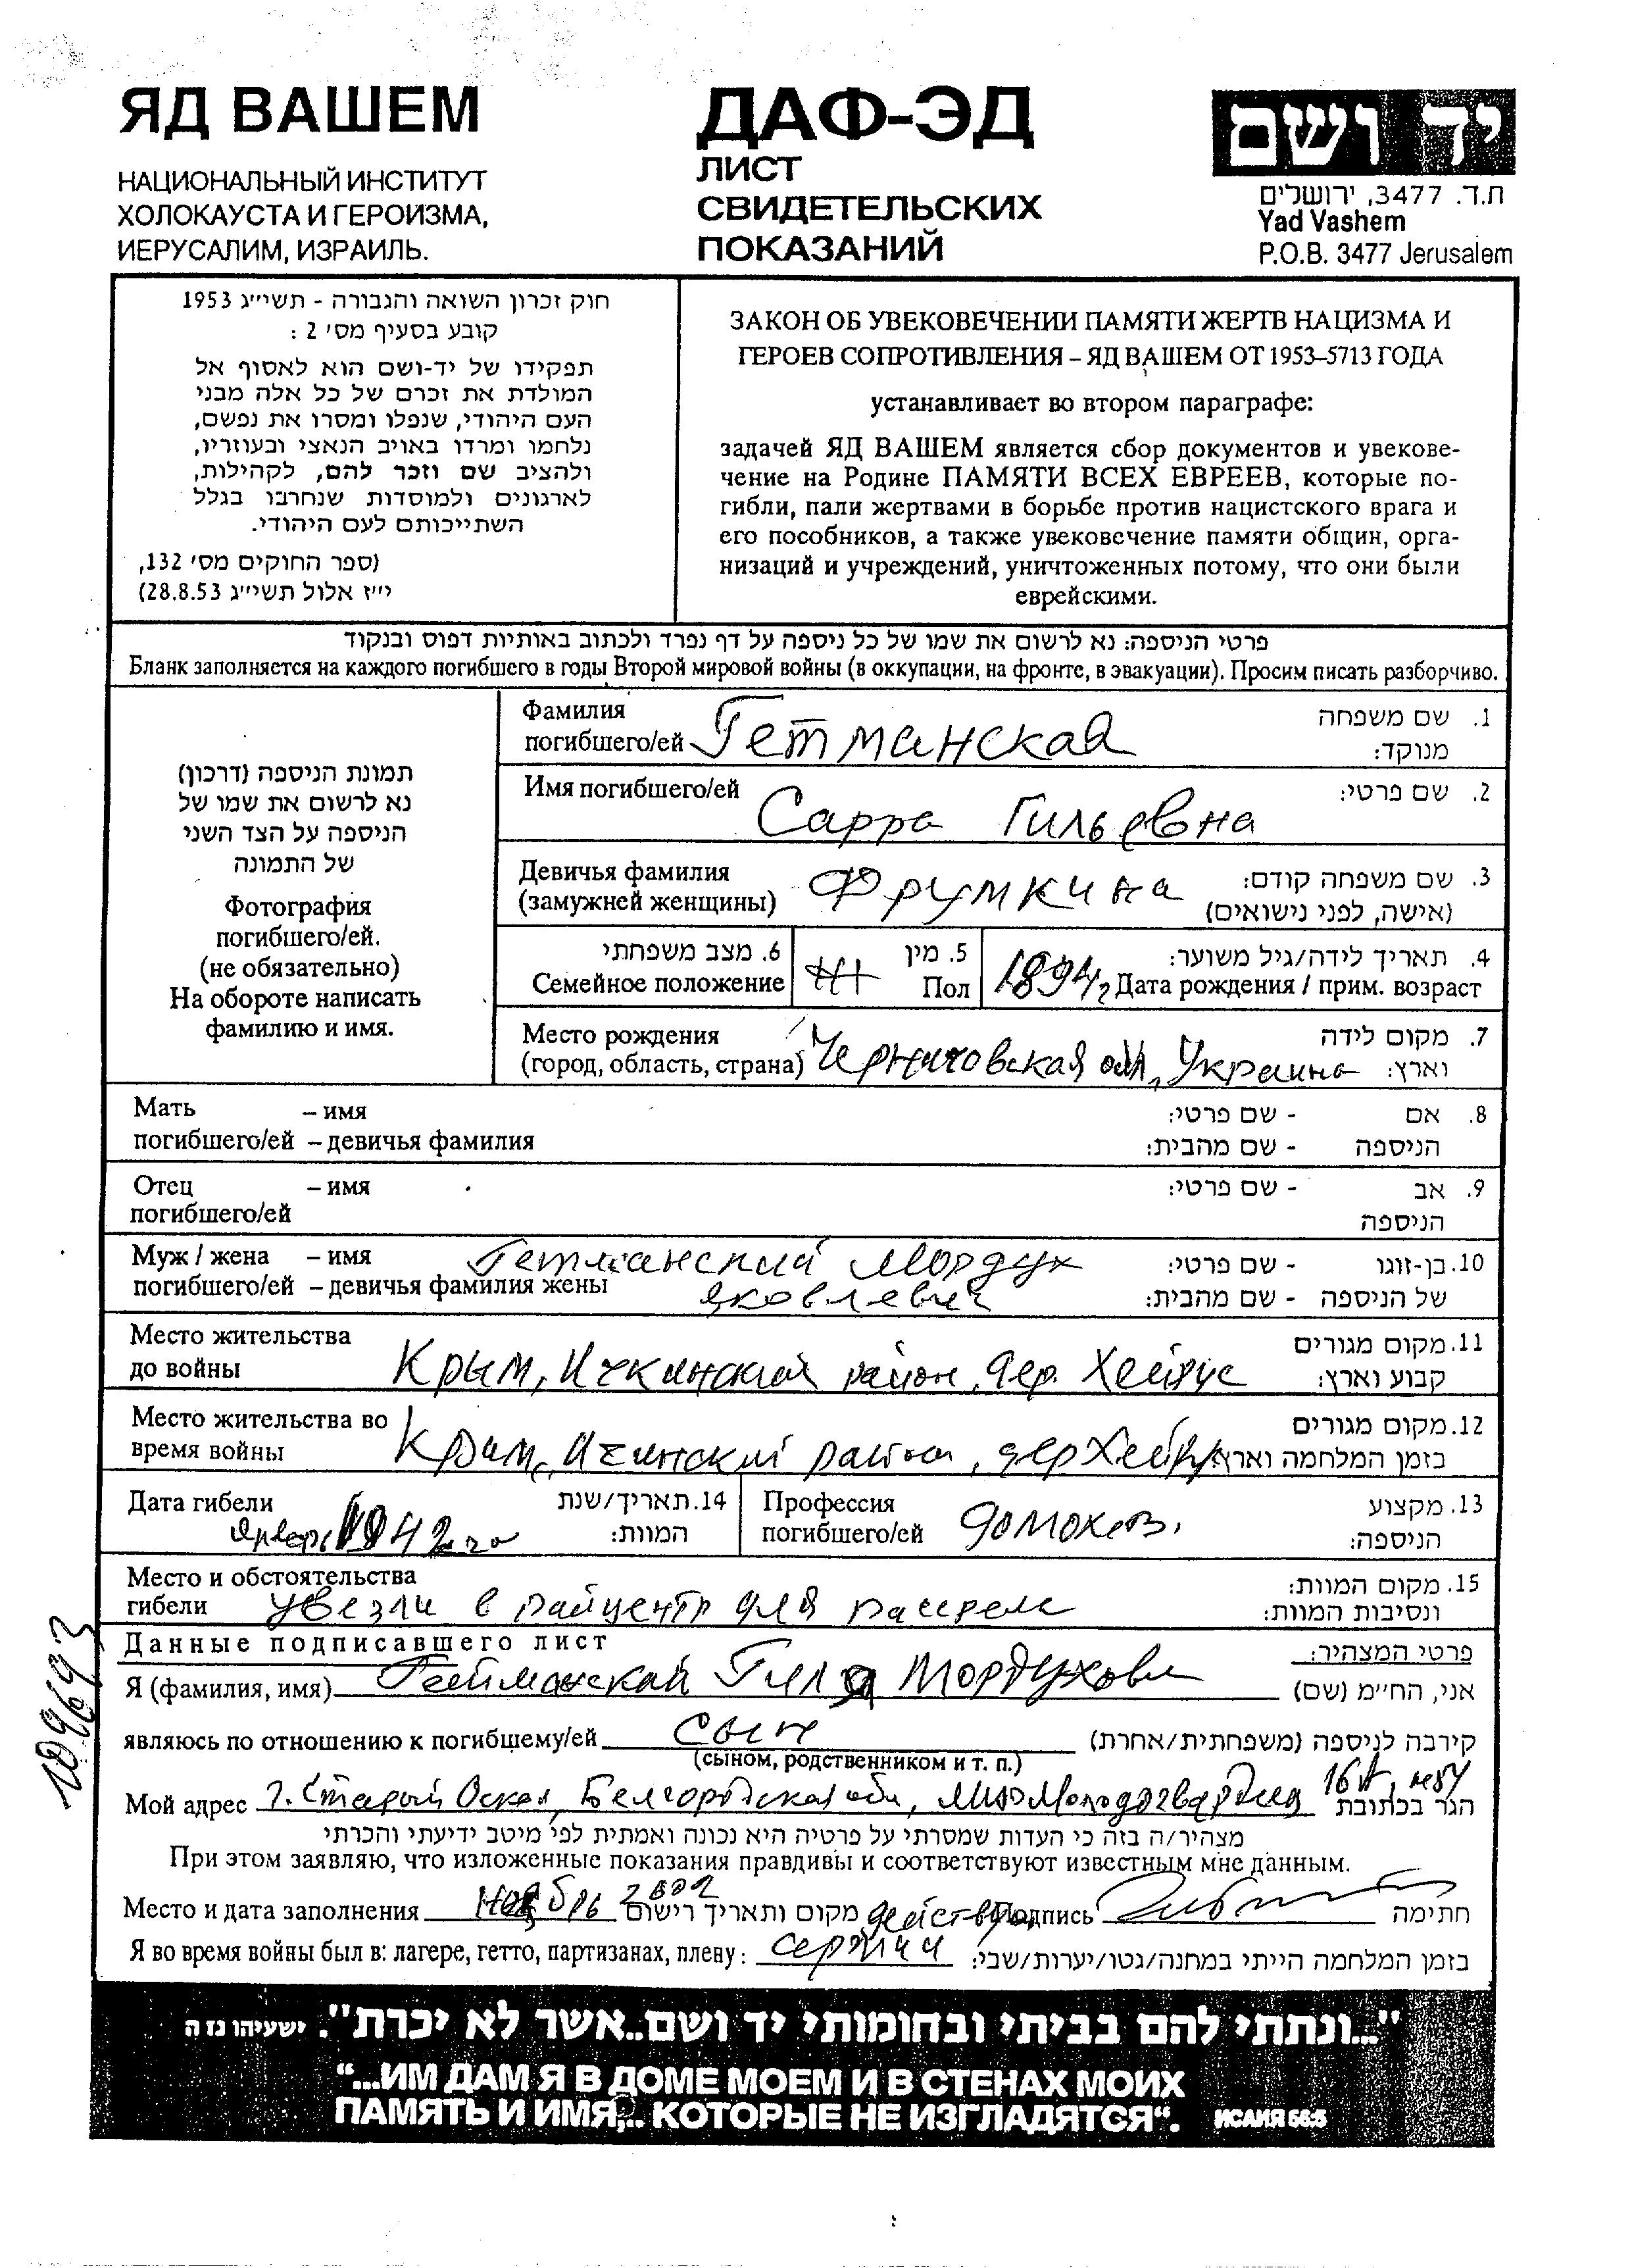 ЯД ВАШЕМ
НАЦИОНАЛЬНЫЙ ИНСТИТУТ
ХОЛОКАУСТА И ГЕРОИЗМА,
ИЕРУСАЛИМ, ИЗРАИЛЬ.
ДАФ-ЭД
ЛИСТ
СВИДЕТЕЛЬСКИХ
ПОКАЗАНИЙ
יד ושם
ת.ד. 3477, ירושלים
Yad Vashem
P.O.B. 3477 Jerusalem
חוק זכרון השואה והגבורה - תשי״ג 1953
קובע בסעיף מס׳ 2 :
תפקידו של יד-ושם הוא לאסוף אל
המולדת את זכרם של כל אלה מבני
העם היהודי, שנפלו ומסרו את נפשם,
נלחמו ומרדו באויב הנאצי ובעוזריו,
ולהציב שם וזכר להם, לקהילות,
לארגונים ולמוסדות שנחרבו בגלל
השתייכותם לעם היהודי.
(ספר החוקים מס׳ 132,
י״ז אלול תשי״ג 28.8.53)
ЗАКОН ОБ УВЕКОВЕЧЕНИИ ПАМЯТИ ЖЕРТВ НАЦИЗМА И
ГЕРОЕВ СОПРОТИВЛЕНИЯ – ЯД ВАШЕМ ОТ 1953–5713 ГОДА
устанавливает во втором параграфе:
задачей ЯД ВАШЕМ является сбор документов и увекове-
чение на Родине ПАМЯТИ ВСЕХ ЕВРЕЕВ, которые по-
гибли, пали жертвами в борьбе против нацистского врага и
его пособников, а также увековечение памяти общин, орга-
низаций и учреждений, уничтоженных потому, что они были
еврейскими.
פרטי הניספה: נא לרשום את שמו של כל ניספה על דף נפרד ולכתוב באותיות דפוס ובנקוד
Бланк заполняется на каждого погибшего в годы Второй мировой войны (в оккупации, на фронте, в эвакуации). Просим писать разборчиво.
תמונת הניספה (דרכון)
נא לרשום את שמו של
הניספה על הצד השני
של התמונה
Фотография
погибшего/ей.
(не обязательно)
На обороте написать
фамилию и имя.
Фамилия 1. שם משפחה
погибшего/ей Гетманская מנוקד:
Имя погибшего/ей Сарра Гильевна 2. שם פרטי:
Девичья фамилия Фрумкина 3. שם משפחה קודם:
(замужней женщины) (אישה, לפני נישואים)
6. מצב משפחתי 5. מין 4. תאריך לידה/גיל משוער:
Семейное положение Пол 1894г Дата рождения / прим. возраст
Место рождения 7. מקום לידה
(город, область, страна) Черниговская обл, Украина וארץ:
Мать – имя 8. אם - שם פרטי:
погибшего/ей – девичья фамилия הניספה - שם מהבית:
Отец – имя 9. אב - שם פרטי:
погибшего/ей הניספה
Муж / жена – имя Гетманский Мордух 10. בן-זוגו - שם פרטי:
погибшего/ей – девичья фамилия жены Яковлевич של הניספה - שם מהבית:
Место жительства 11. מקום מגורים
до войны Крым, Ичкинский район, дер. Хейрус קבוע וארץ:
Место жительства во 12. מקום מגורים
время войны Крым, Ичкинский район, дер בזמן המלחמה וארץ
Дата гибели 14. תאריך/שנת Профессия 13. מקצוע
Январь 1942 המוות: погибшего/ей домохоз. הניספה:
Место и обстоятельства 15. מקום המוות:
гибели увезли в райцентр для расстрела ונסיבות המוות:
Данные подписавшего лист פרטי המצהיר:
Я (фамилия, имя) Гетманский Гиля Мордухови אני, הח״מ (שם)
являюсь по отношению к погибшему/ей сын קירבה לניספה (משפחתית/אחרת)
(сыном, родственником и т. п.)
Мой адрес г. Старый Оскол, Белгородская обл, הגר בכתובת
מצהיר/ה בזה כי העדות שמסרתי על פרטיה היא נכונה ואמתית לפי מיטב ידיעתי והכרתי
При этом заявляю, что изложенные показания правдивы и соответствуют известным мне данным.
Место и дата заполнения Ноябрь 2002 מקום ותאריך רישום Подпись חתימה
Я во время войны был в: лагере, гетто, партизанах, плену: בזמן המלחמה הייתי במחנה/גטו/יערות/שבי:
109693
"...ונתתי להם בביתי ובחומותי יד ושם..אשר לא יכרת". ישעיהו נו ה
“...ИМ ДАМ Я В ДОМЕ МОЕМ И В СТЕНАХ МОИХ
ПАМЯТЬ И ИМЯ,.. КОТОРЫЕ НЕ ИЗГЛАДЯТСЯ“. ИСАИЯ 56:5